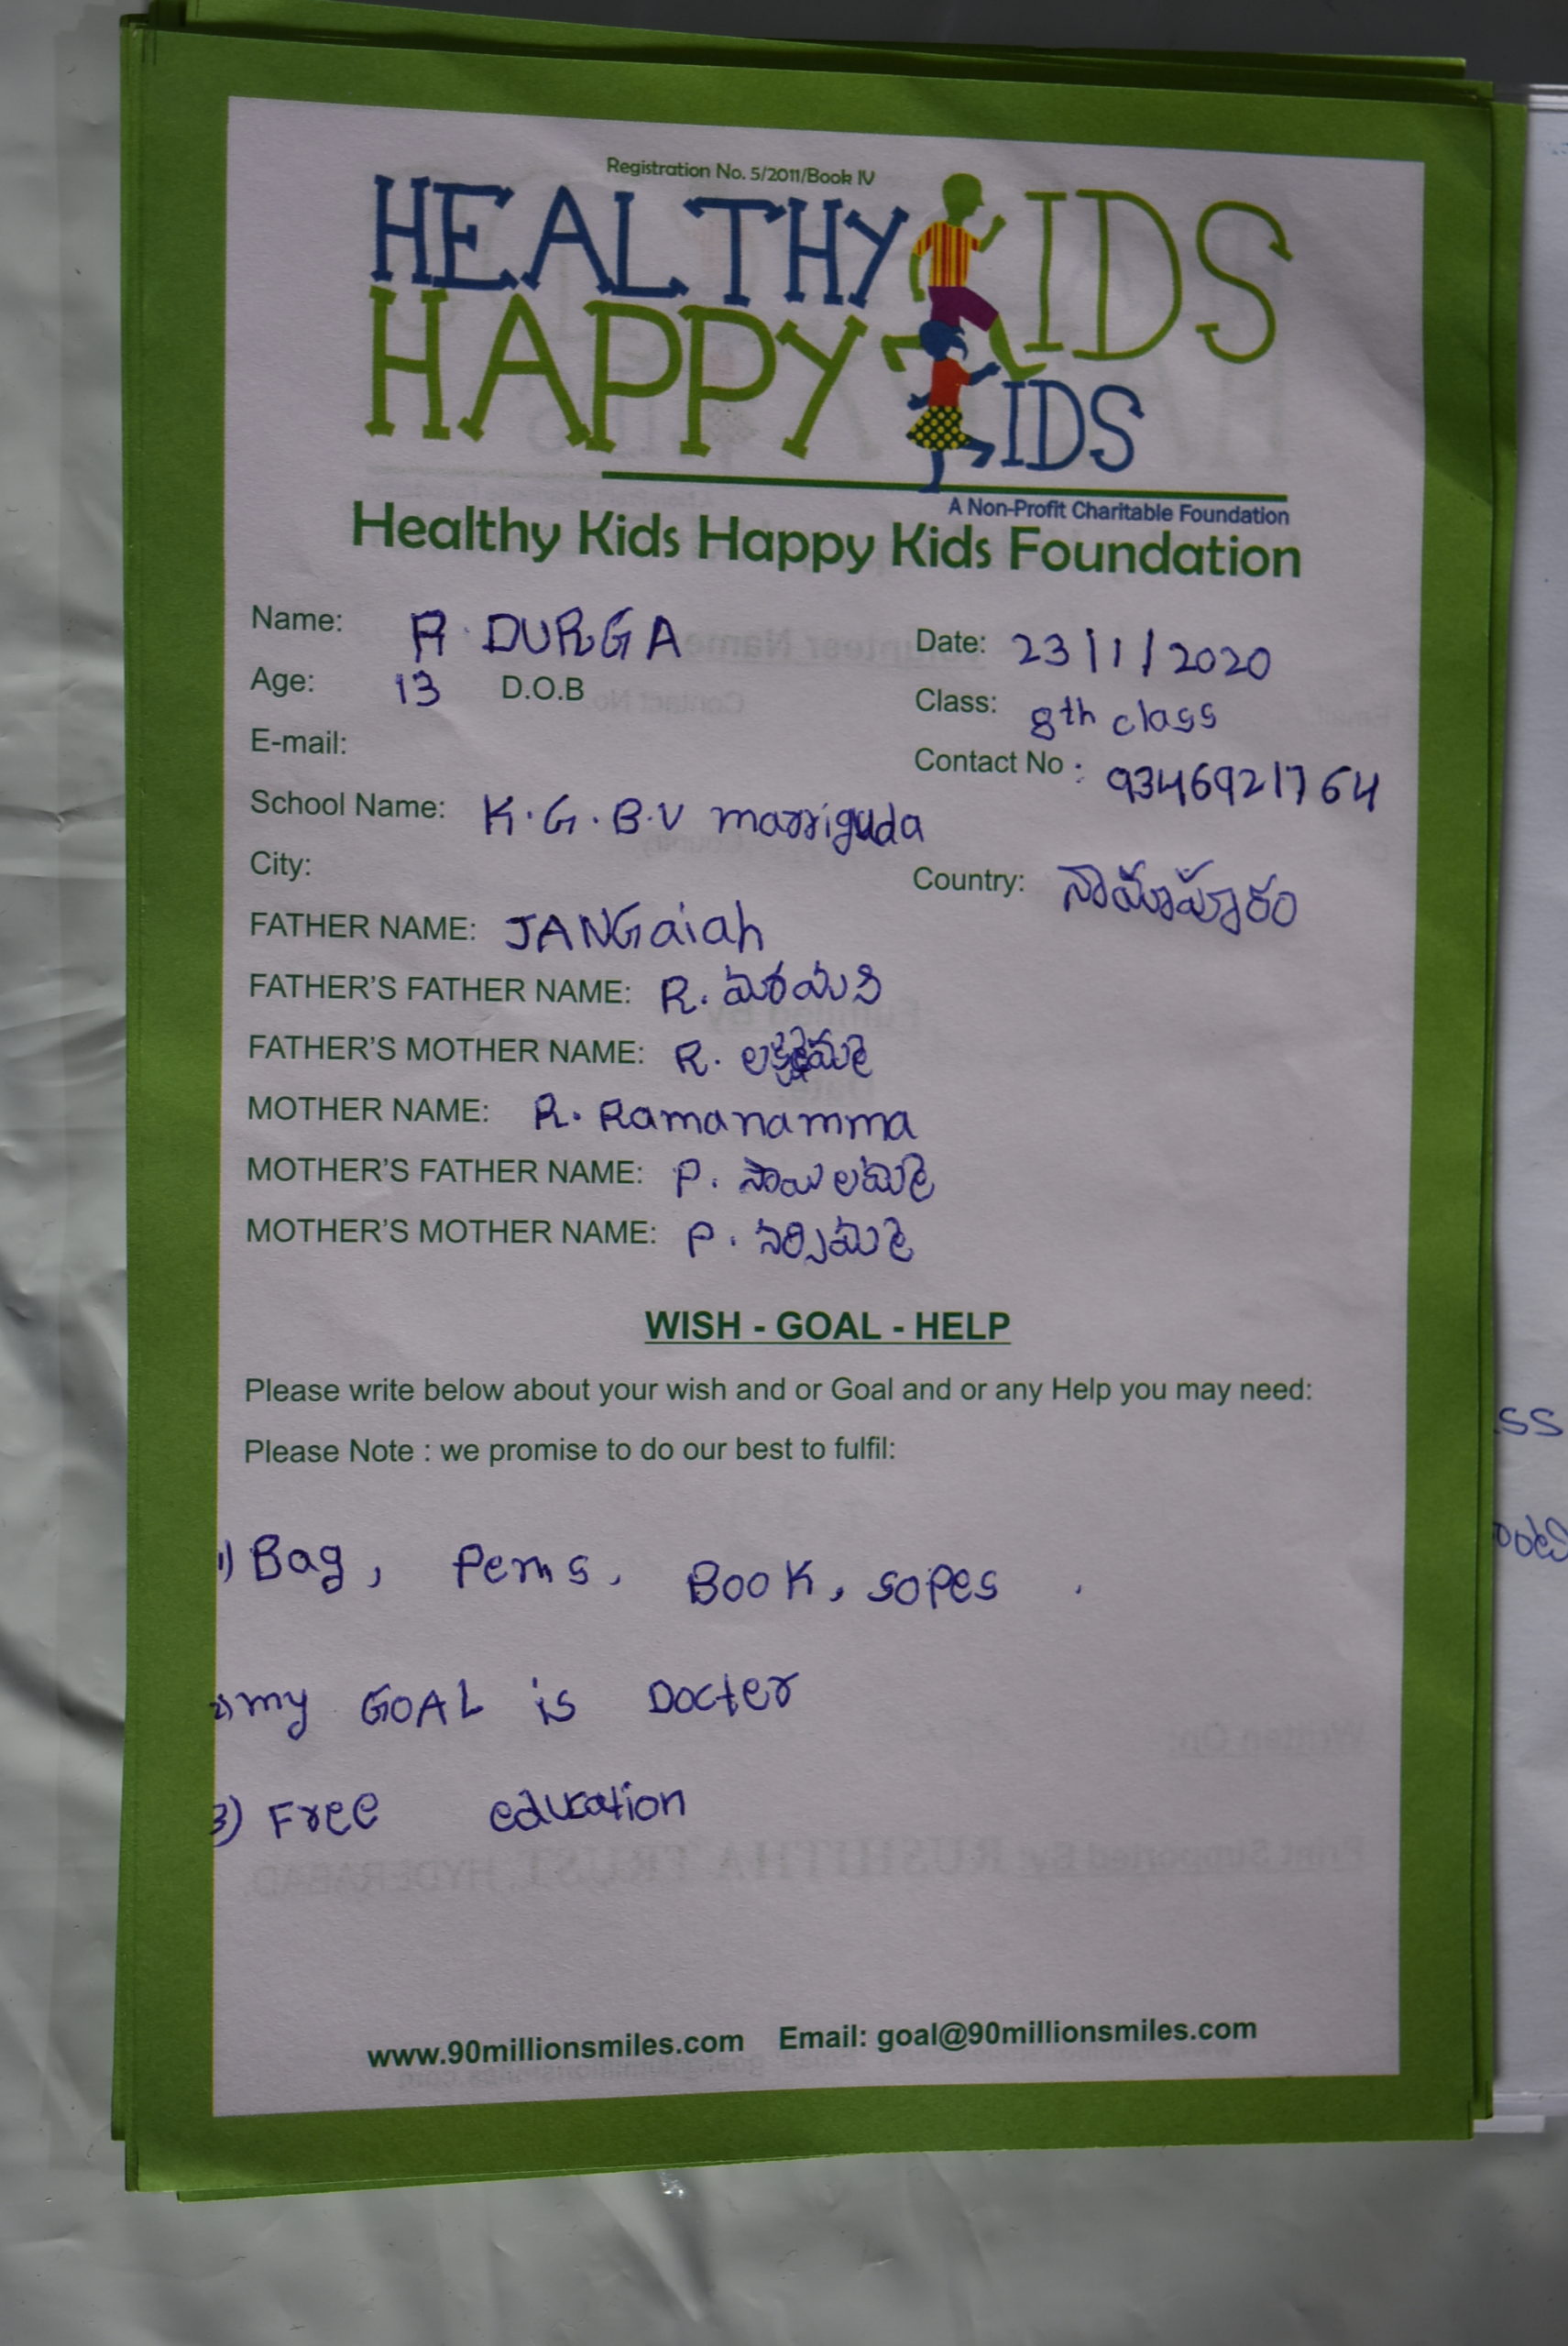 Registration No. 5/2011/Book IV
HEALTHY KIDS
HAPPY KIDS
A Non-Profit Charitable Foundation
Healthy Kids Happy Kids Foundation
Name: R. DURGA Date: 23/1/2020
Age: 13 D.O.B Class: 8th class
E-mail: Contact No : 9346921764
School Name: K.G.B.V marriguda
City: Country:
FATHER NAME: JANGaiah
FATHER'S FATHER NAME: R.
FATHER'S MOTHER NAME: R. లక్ష్మమ్మ
MOTHER NAME: R. Ramanamma
MOTHER'S FATHER NAME: P.
MOTHER'S MOTHER NAME: P.
WISH - GOAL - HELP
Please write below about your wish and or Goal and or any Help you may need:
Please Note : we promise to do our best to fulfil:
1) Bag, Pems, Book, sopes.
2) my GOAL is Docter
3) Free education
www.90millionsmiles.com Email: goal@90millionsmiles.com